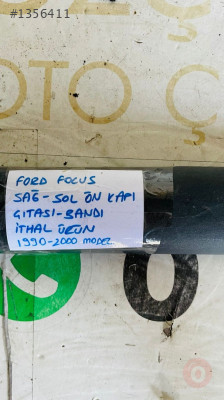 #1356411
OTO Ç
FORD FOCUS
SAĞ-SOL ÖN KAPI
ÇITASI-BANDI
İTHAL ÜRÜN
1990-2000 MODEL